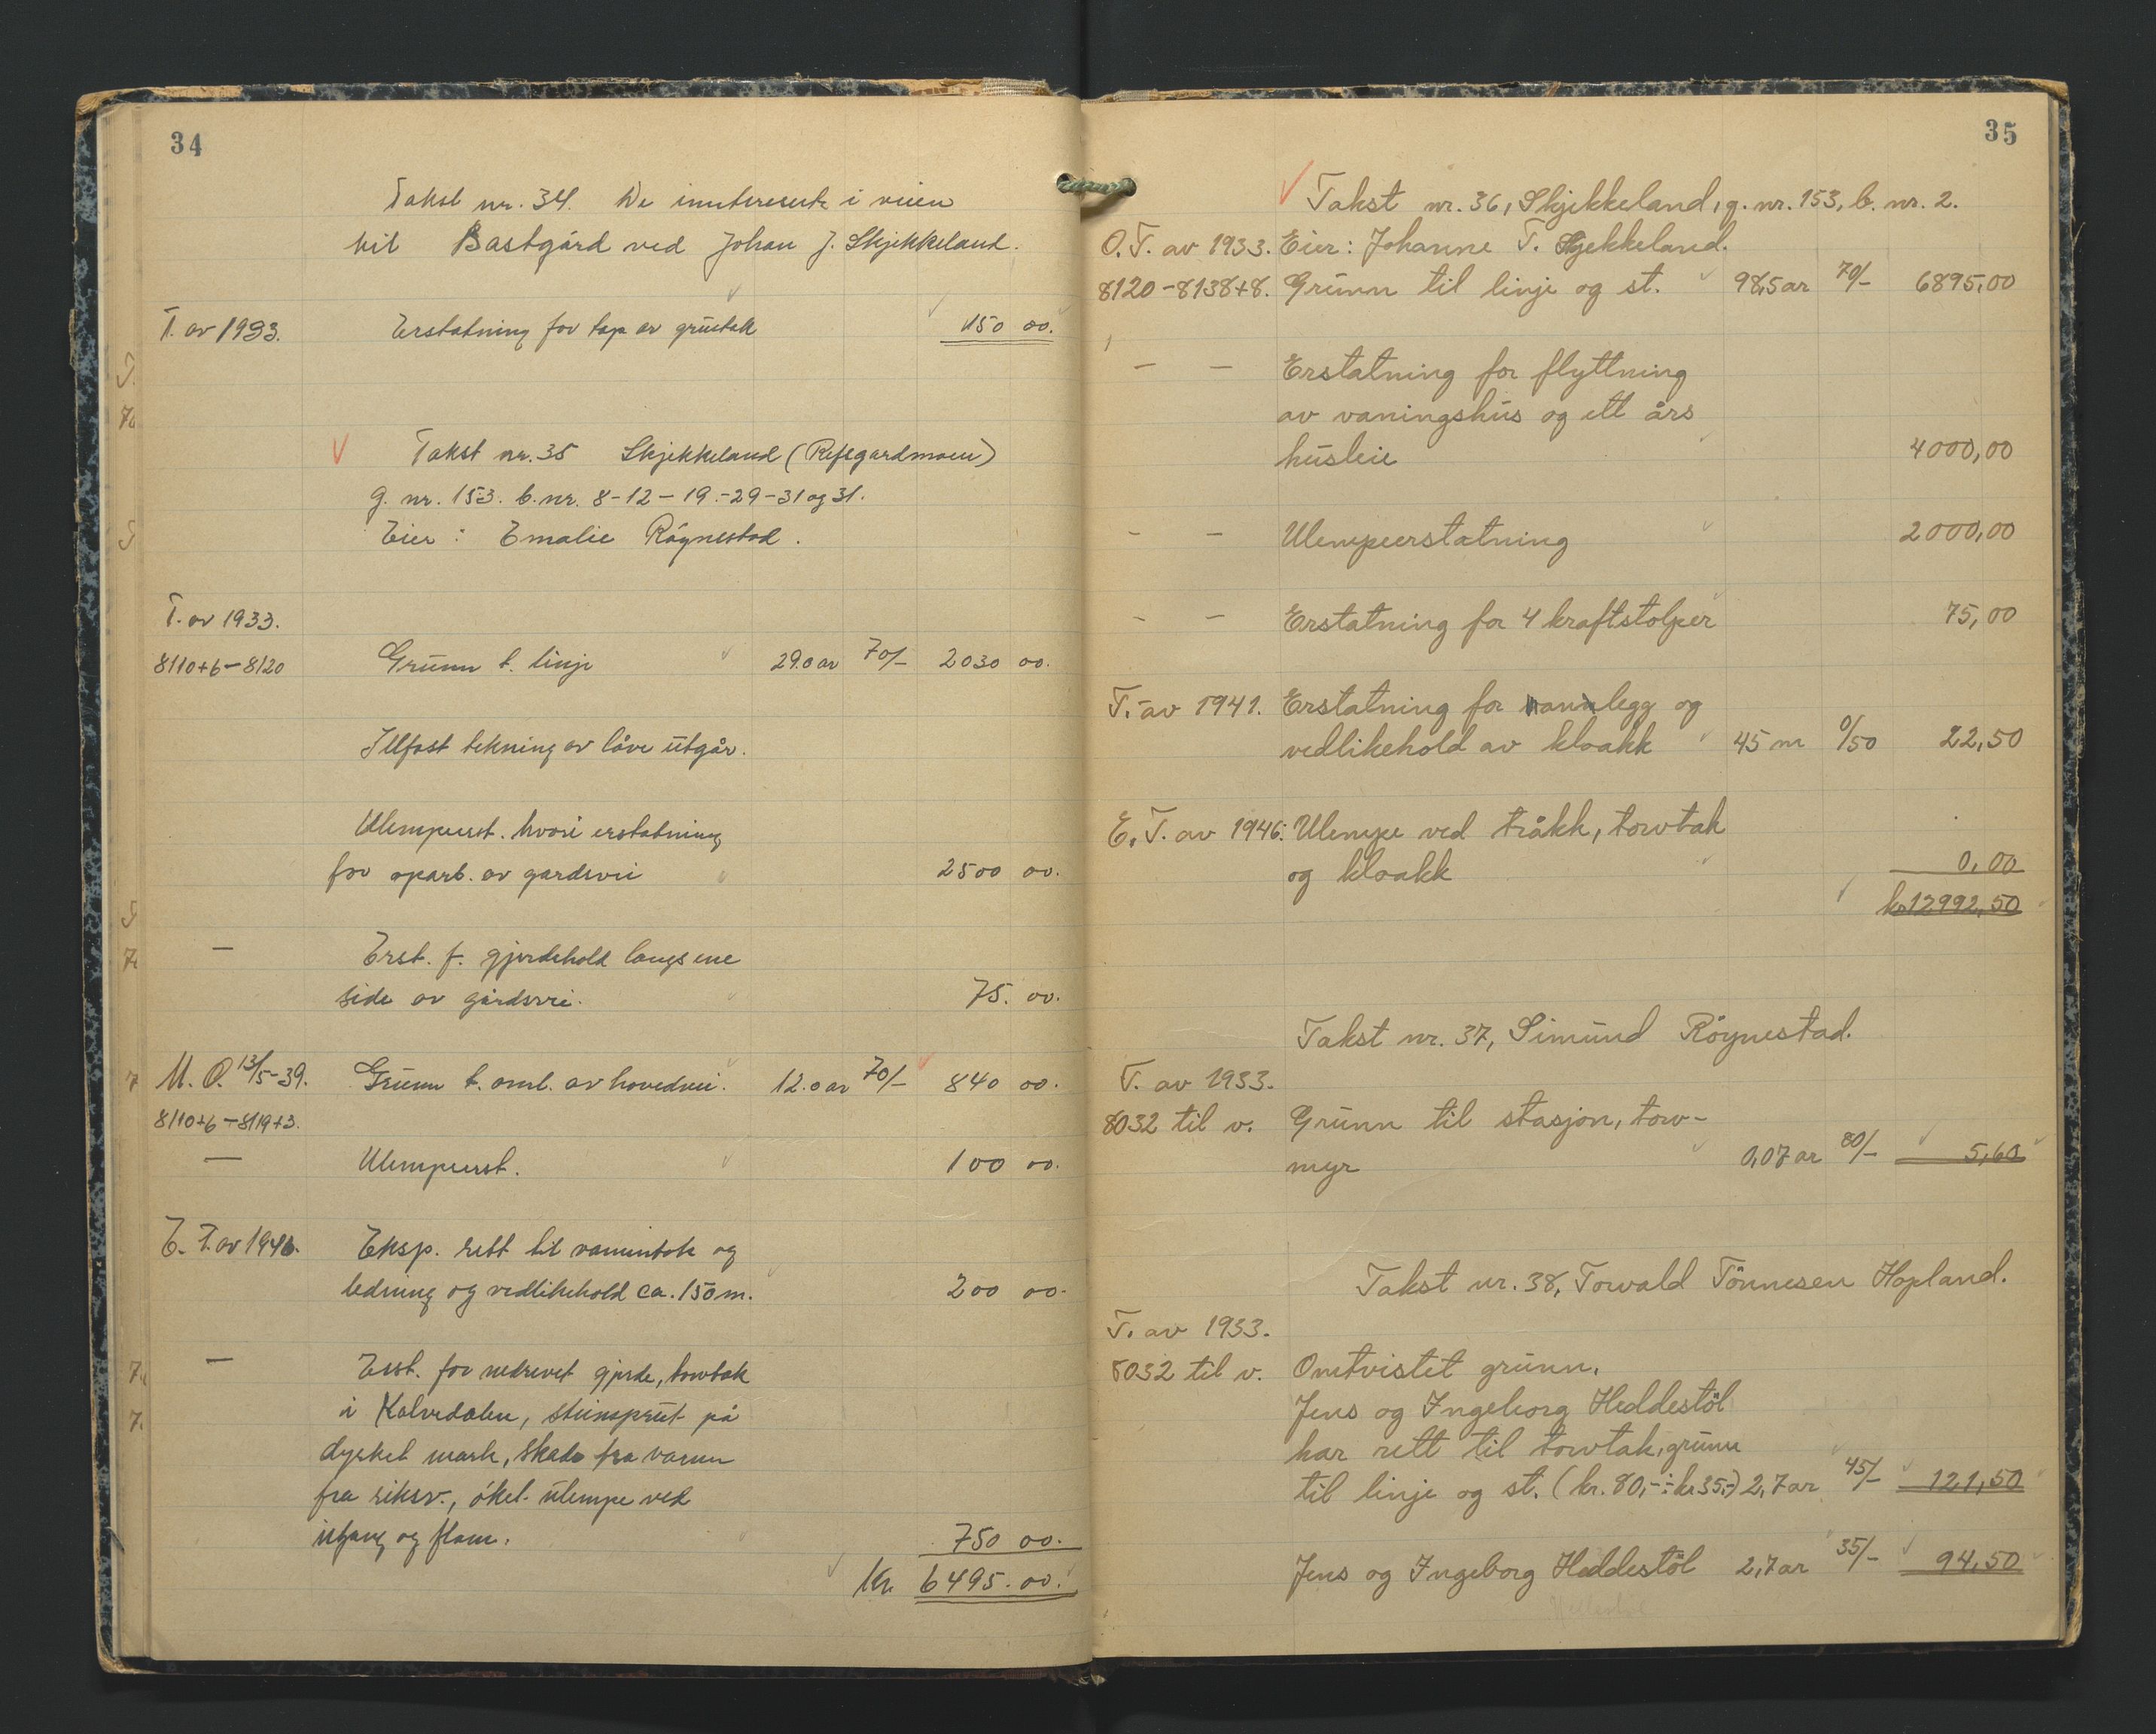 34
Takst nr. 34. De inntereserte i veien
til Bastgård ved Johan J. Skjekkeland.
T. av 1933. Erstatning for tap av grustak 150 00.
Takst nr. 35 Skjekkeland (Refsgardmoen)
g. nr. 153. b. nr. 8-12-19.-29-31 og 31.
Eier: Emalie Röynestad.
T. av 1933.
8110+6-8120 Grunn t. linje 29.0 ar 70/- 2030 00.
Illfast tekning av låve utgår.
Ulempeerst. hvori erstatning
for oparb. av gardsvei 2500 00.
- Erst. f. gjerdehold langs ene
side av gårdsvei. 75. 00.
M. O. 13/5-39. Grunn t. oml. av hovedvei. 12.0 ar 70/- 840 00.
8110+6-8119+3.
- Ulempeerst. 100 00.
E. T. av 1946. Eksp. rett til vanninntak og
ledning og vedlikehold ca. 150 m. 200 00.
- Erst. for nedrevet gjerde, torvtak
i Kalvedalen, steinsprut på
dyrket mark, skade fra vann
fra riksv., öket ulempe ved
utgang og flom. 750 00.
Kr. 6495.00.
35
Takst nr. 36, Skjekkeland, g. nr. 153, b. nr. 2.
O. T. av 1933. Eier: Johanne T. Skjekkeland.
8120-8138+8. Grunn til linje og st. 98,5 ar 70/- 6895,00
- - Erstatning for flyttning
av vaningshus og ett års
husleie 4000,00
- - Ulempeerstatning 2000,00
- - Erstatning for 4 kraftstolper 75,00
T. av 1941. Erstatning for nannlegg og
vedlikehold av kloakk 45 m 0/50 22,50
E. T. av 1946: Ulempe ved tråkk, torvtak
og kloakk 0,00
kr 12992,50
Takst nr. 37, Simund Röynestad.
T. av 1933.
8032 til v. Grunn til stasjon, torv-
myr 0,07 ar 80/- 5,60
Takst nr. 38, Torvald Tönnesen Hopland.
T. av 1933.
8032 til v. Omtvistet grunn.
Jens og Ingeborg Heddestöl
har rett til torvtak, grunn
til linje og st. (kr. 80,- ÷ kr 35,-) 2,7 ar 45/- 121,50
Jens og Ingeborg Heddestöl 2,7 ar 35/- 94,50